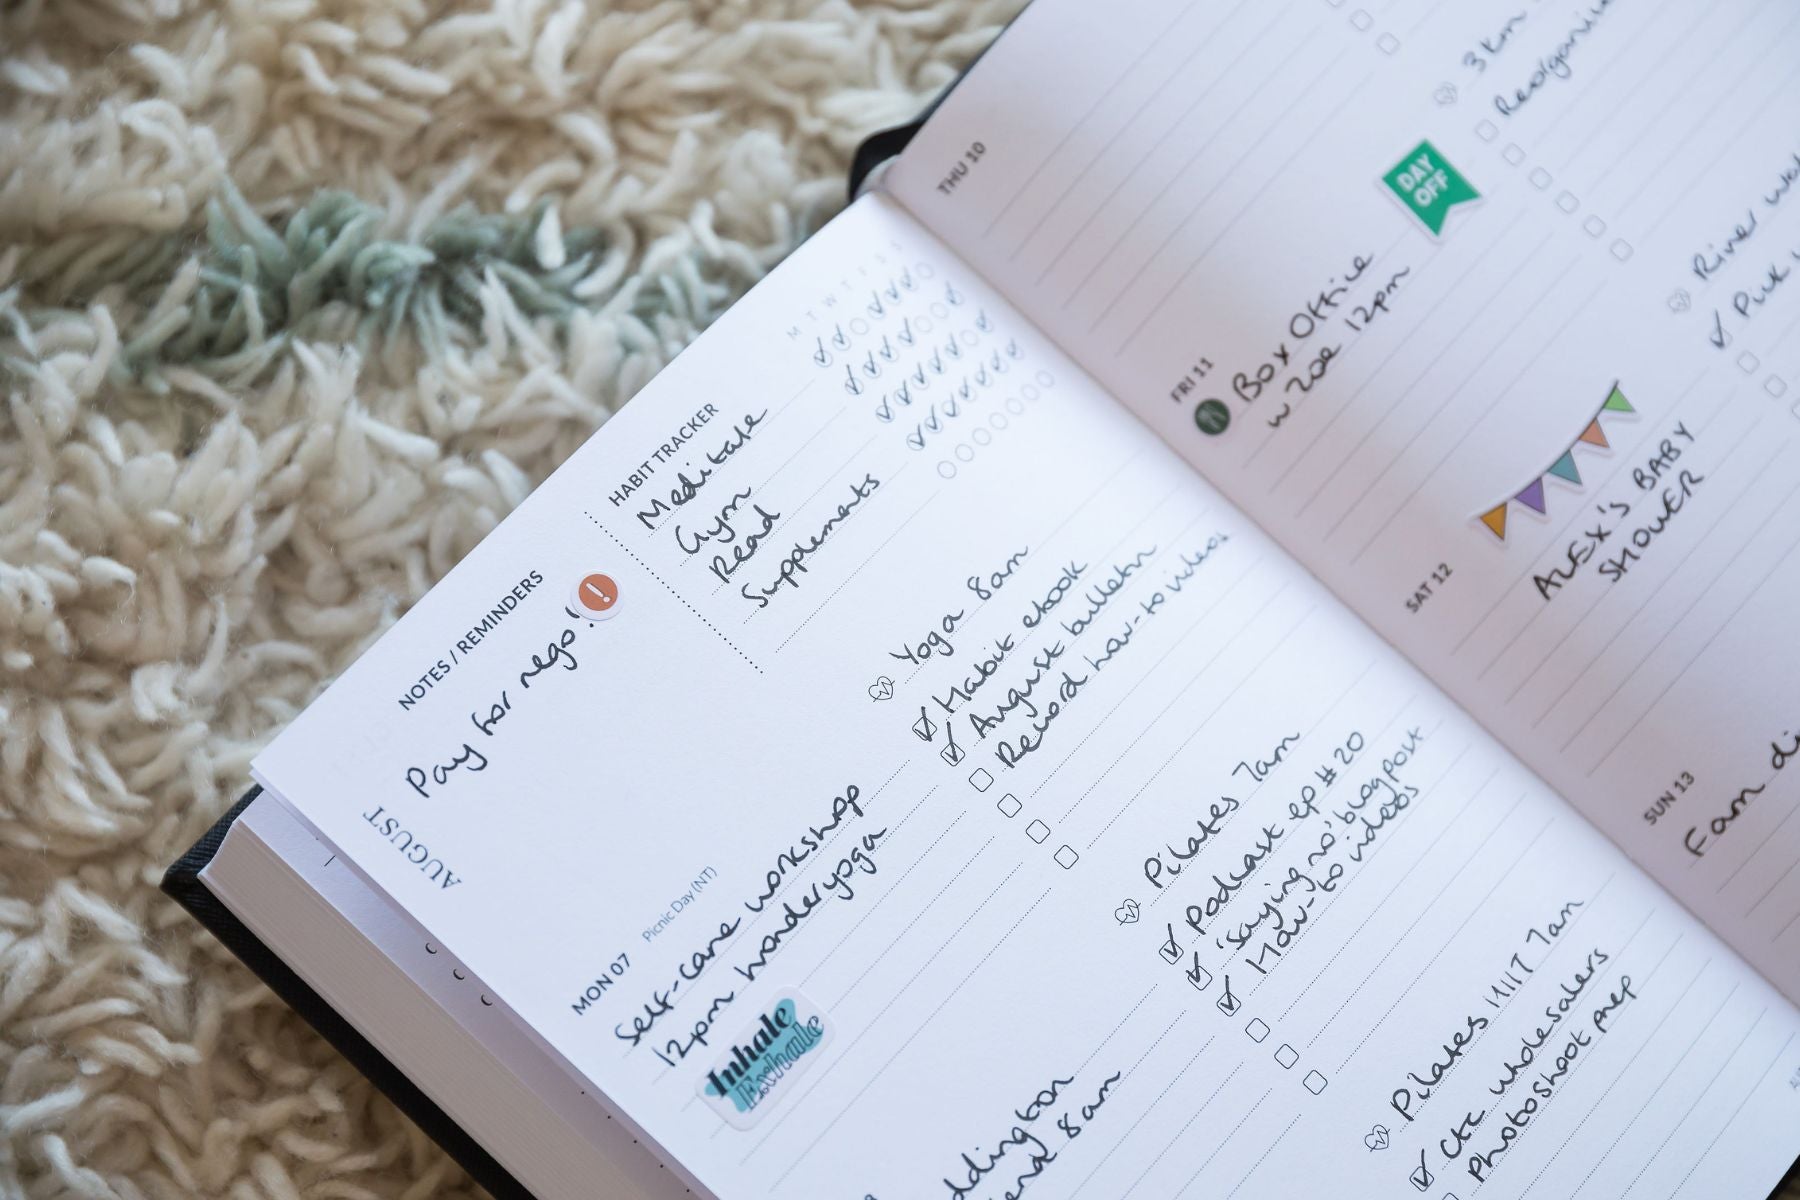 AUGUST
NOTES / REMINDERS
Pay for rego!
!
HABIT TRACKER
M T W T F S S
Meditate
Gym
Read
Supplements
MON 07
Picnic Day (NT)
Self-care workshop
12pm wonderyoga
Inhale
Exhale
Yoga 8am
Habit ebook
August bulletin
Record how-to videos
Pilates 7am
Podcast ep #20
'Saying no' blog post
How-to videos
ddington
8am
Pilates HIIT 7am
CTC wholesalers
Photoshoot prep
THU 10
3km
DAY
OFF
FRI 11
Box Office
w Zoe 12pm
River
Pick
SAT 12
ALEX'S BABY
SHOWER
SUN 13
Fam